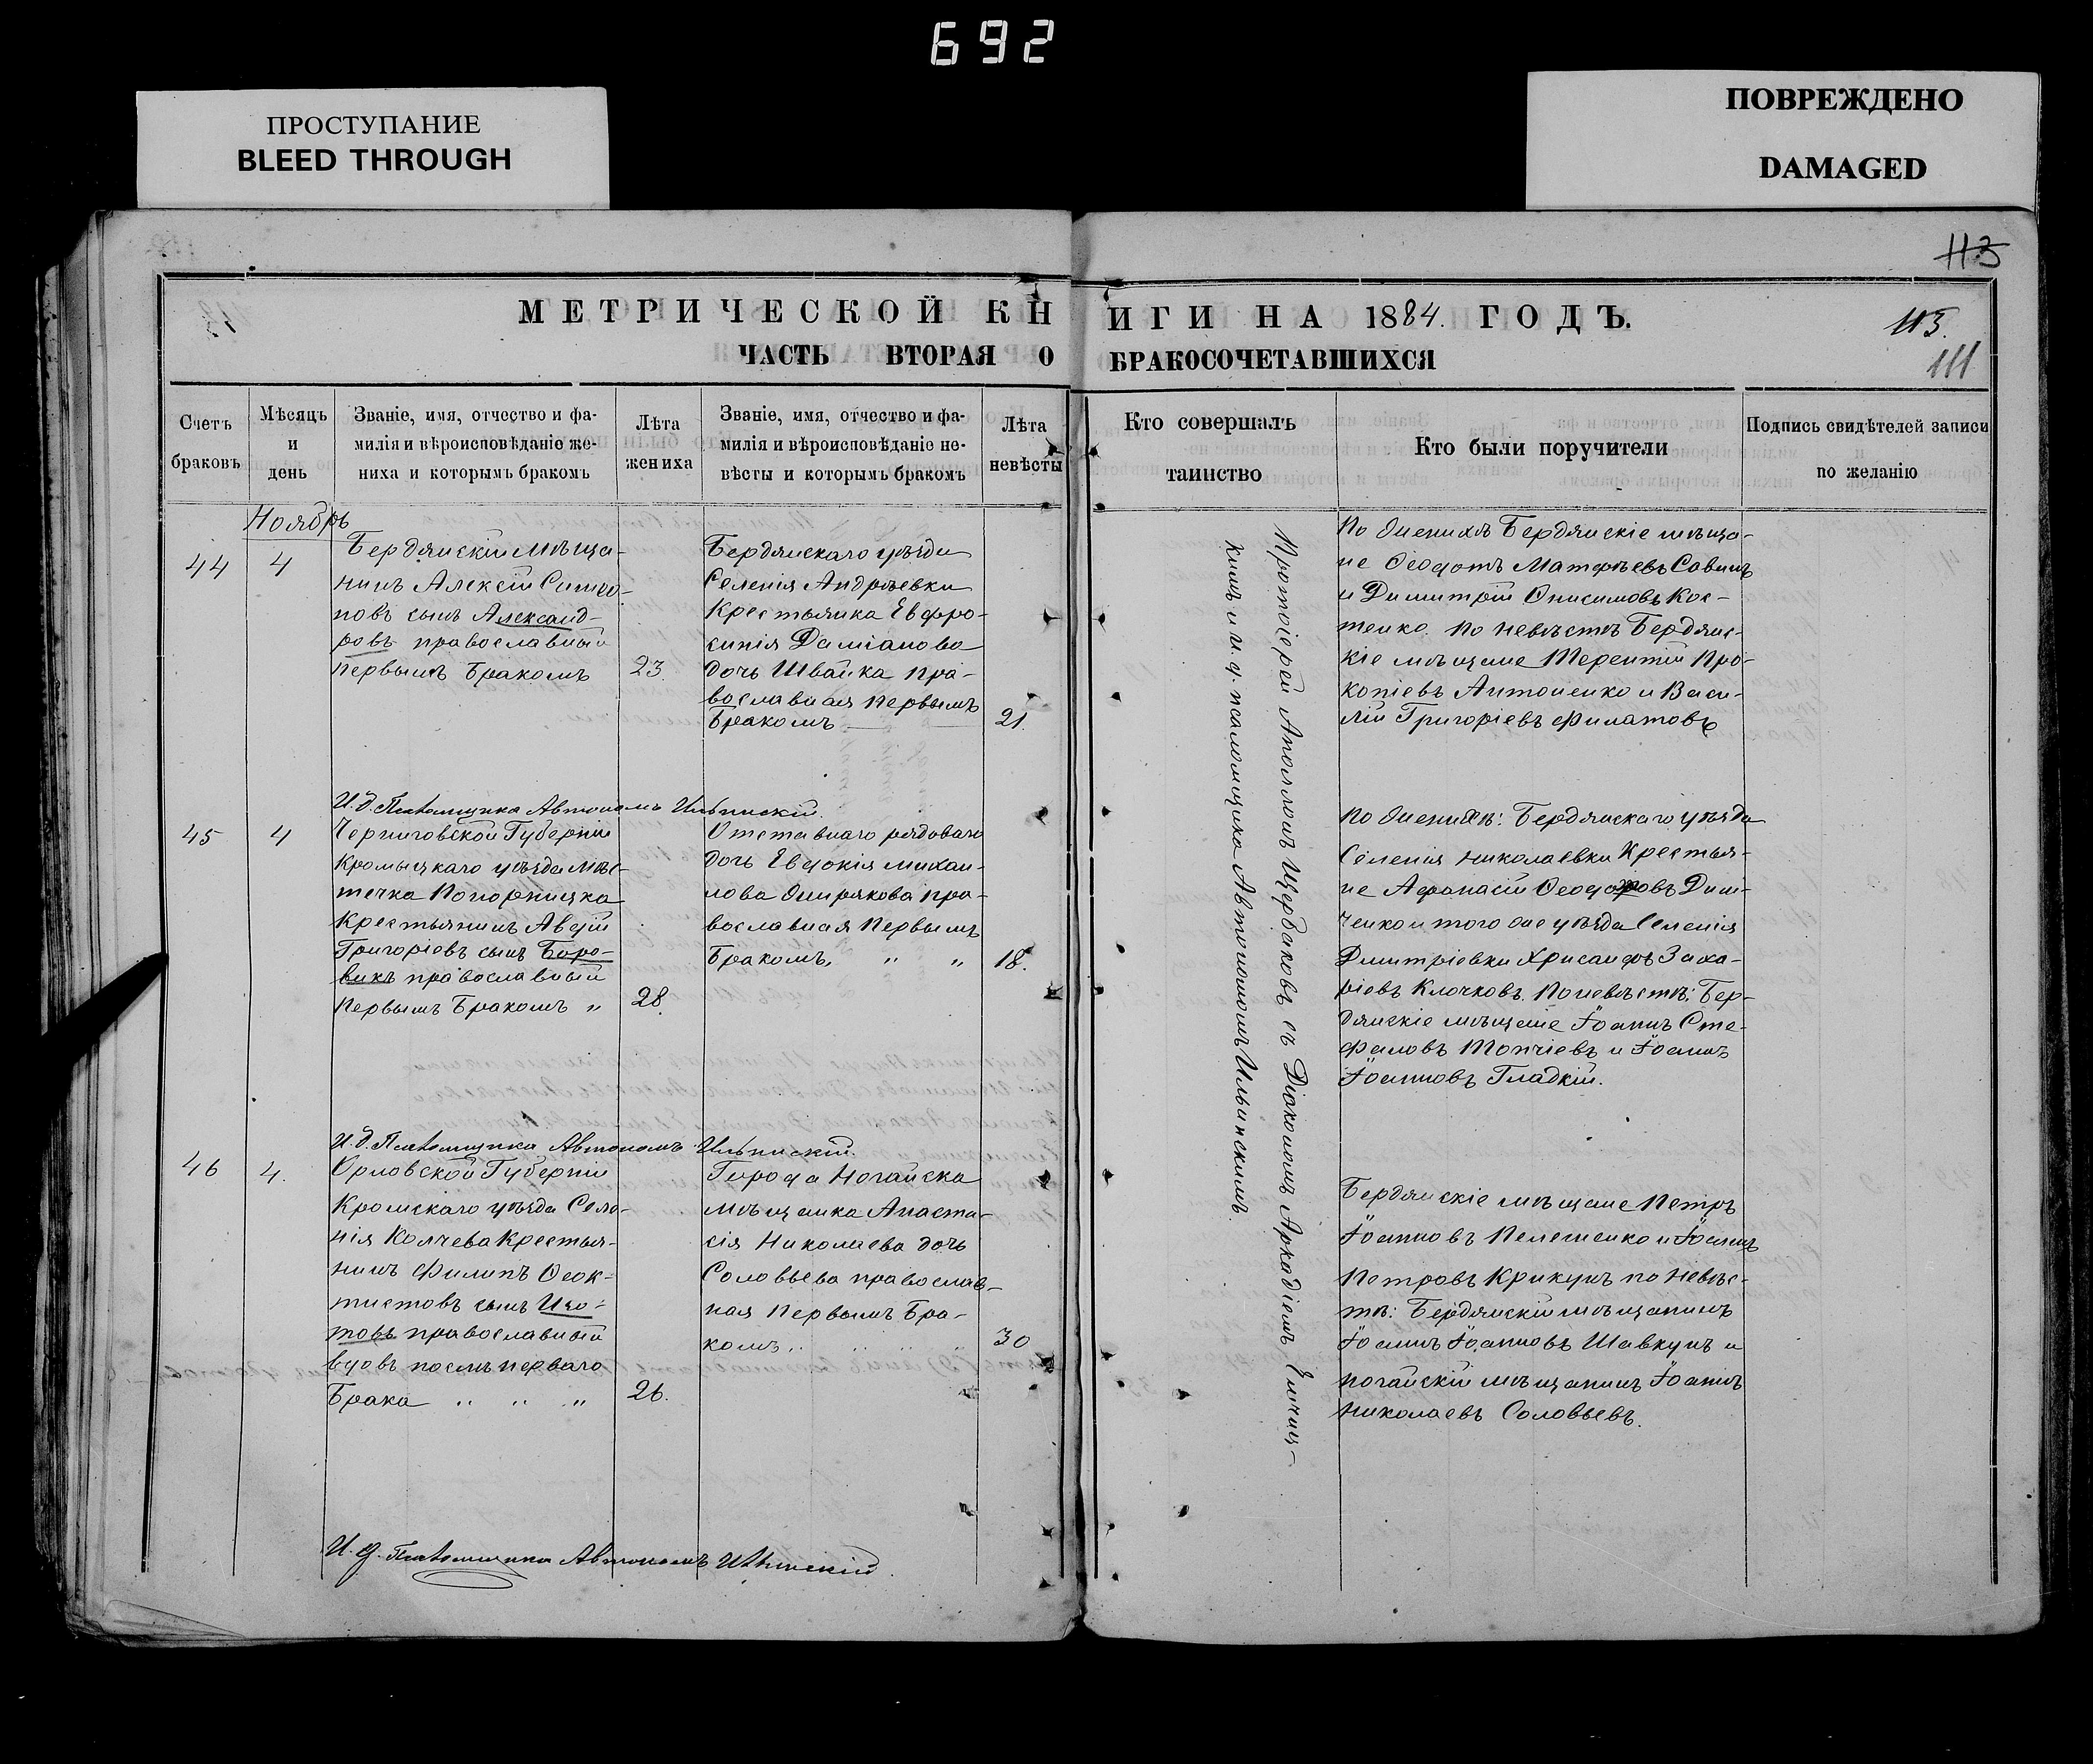 692
ПРОСТУПАНИЕ
BLEED THROUGH
ПОВРЕЖДЕНО
DAMAGED
113
МЕТРИЧЕСКОЙ КНИГИ НА 1884. ГОДЪ.
113.
ЧАСТЬ ВТОРАЯ О БРАКОСОЧЕТАВШИХСЯ
111
Счетъ браковъ
Мѣсяцъ и день
Званіе, имя, отчество и фа-
милія и вѣроисповѣданіе же-
ниха и которымъ бракомъ
Лѣта жениха
Званіе, имя, отчество и фа-
милія и вѣроисповѣданіе не-
вѣсты и которымъ бракомъ
Лѣта невѣсты
Кто совершалъ
таинство
Кто были поручители
Подпись свидѣтелей записи
по желанію
Ноябрь
44
4
Бердянскій мѣща-
нинъ Алексій Симео-
новъ сынъ Александ-
ровъ православный
первымъ бракомъ
23.
Бердянскаго уѣзда
Селенія Андреевки
Крестьянка Евфро-
синія Даміанова
дочь Швайка пра-
вославная первымъ
бракомъ
21.
По женихѣ Бердянскіе мѣща-
не Ѳеодотъ Матфѣевъ Савинъ
и Димитрій Онисимовъ Кос-
тенко. По невѣстѣ Бердянс-
кіе мѣщане Терентій Про-
копіевъ Антоненко и Васи-
лій Григоріевъ Филатовъ
И. д. Псаломщика Автономъ Ильинскій.
45
4
Черниговской Губерніи
уѣзда Мѣс-
течка Понорницка
Крестьянинъ Авдій
Григоріевъ сынъ Боро-
викъ православный
первымъ бракомъ "
28.
Отставнаго рядоваго
дочь Евдокія Михаи-
лова пра-
вославная первымъ
бракомъ, " "
18.
По женихѣ: Бердянскаго уѣзда
Селенія Николаевки Крестья-
не Афанасій Ѳеодоровъ
и того же уѣзда Селенія
Дмитріевки Хрисанфъ Заха-
ріевъ Клочковъ. По невѣстѣ: Бер-
дянскіе мѣщане Іоаннъ Сте-
фановъ Топчіевъ и Іоаннъ
Іоанновъ Гладкій.
И. д. Псаломщика Автономъ Ильинскій.
46
4.
Орловской Губерніи
Кромскаго уѣзда Селе-
нія Колчева Крестья-
нинъ Филипъ Ѳеок-
тистовъ сынъ Изо-
товъ православный
вдовъ послѣ перваго
брака " " "
26.
Города Ногайска
мѣщанка Анаста-
сія Николаева дочь
Соловьева православ-
ная первымъ бра-
комъ " " "
30
Бердянскіе мѣщане Петръ
Іоанновъ Пелешенко и Іоаннъ
Петровъ Крикунъ по невѣс-
тѣ: Бердянскій мѣщанинъ
Іоаннъ Іоанновъ Шавкунъ и
ногайскій мѣщанинъ Іоаннъ
Николаевъ Соловьевъ.
Протоіерей Аполлонъ Щербаковъ, съ Діакономъ Аркадіемъ
кимъ и и. д. псаломщика Автономомъ Ильинскимъ.
И. д. Псаломщика Автономъ Ильинскій.